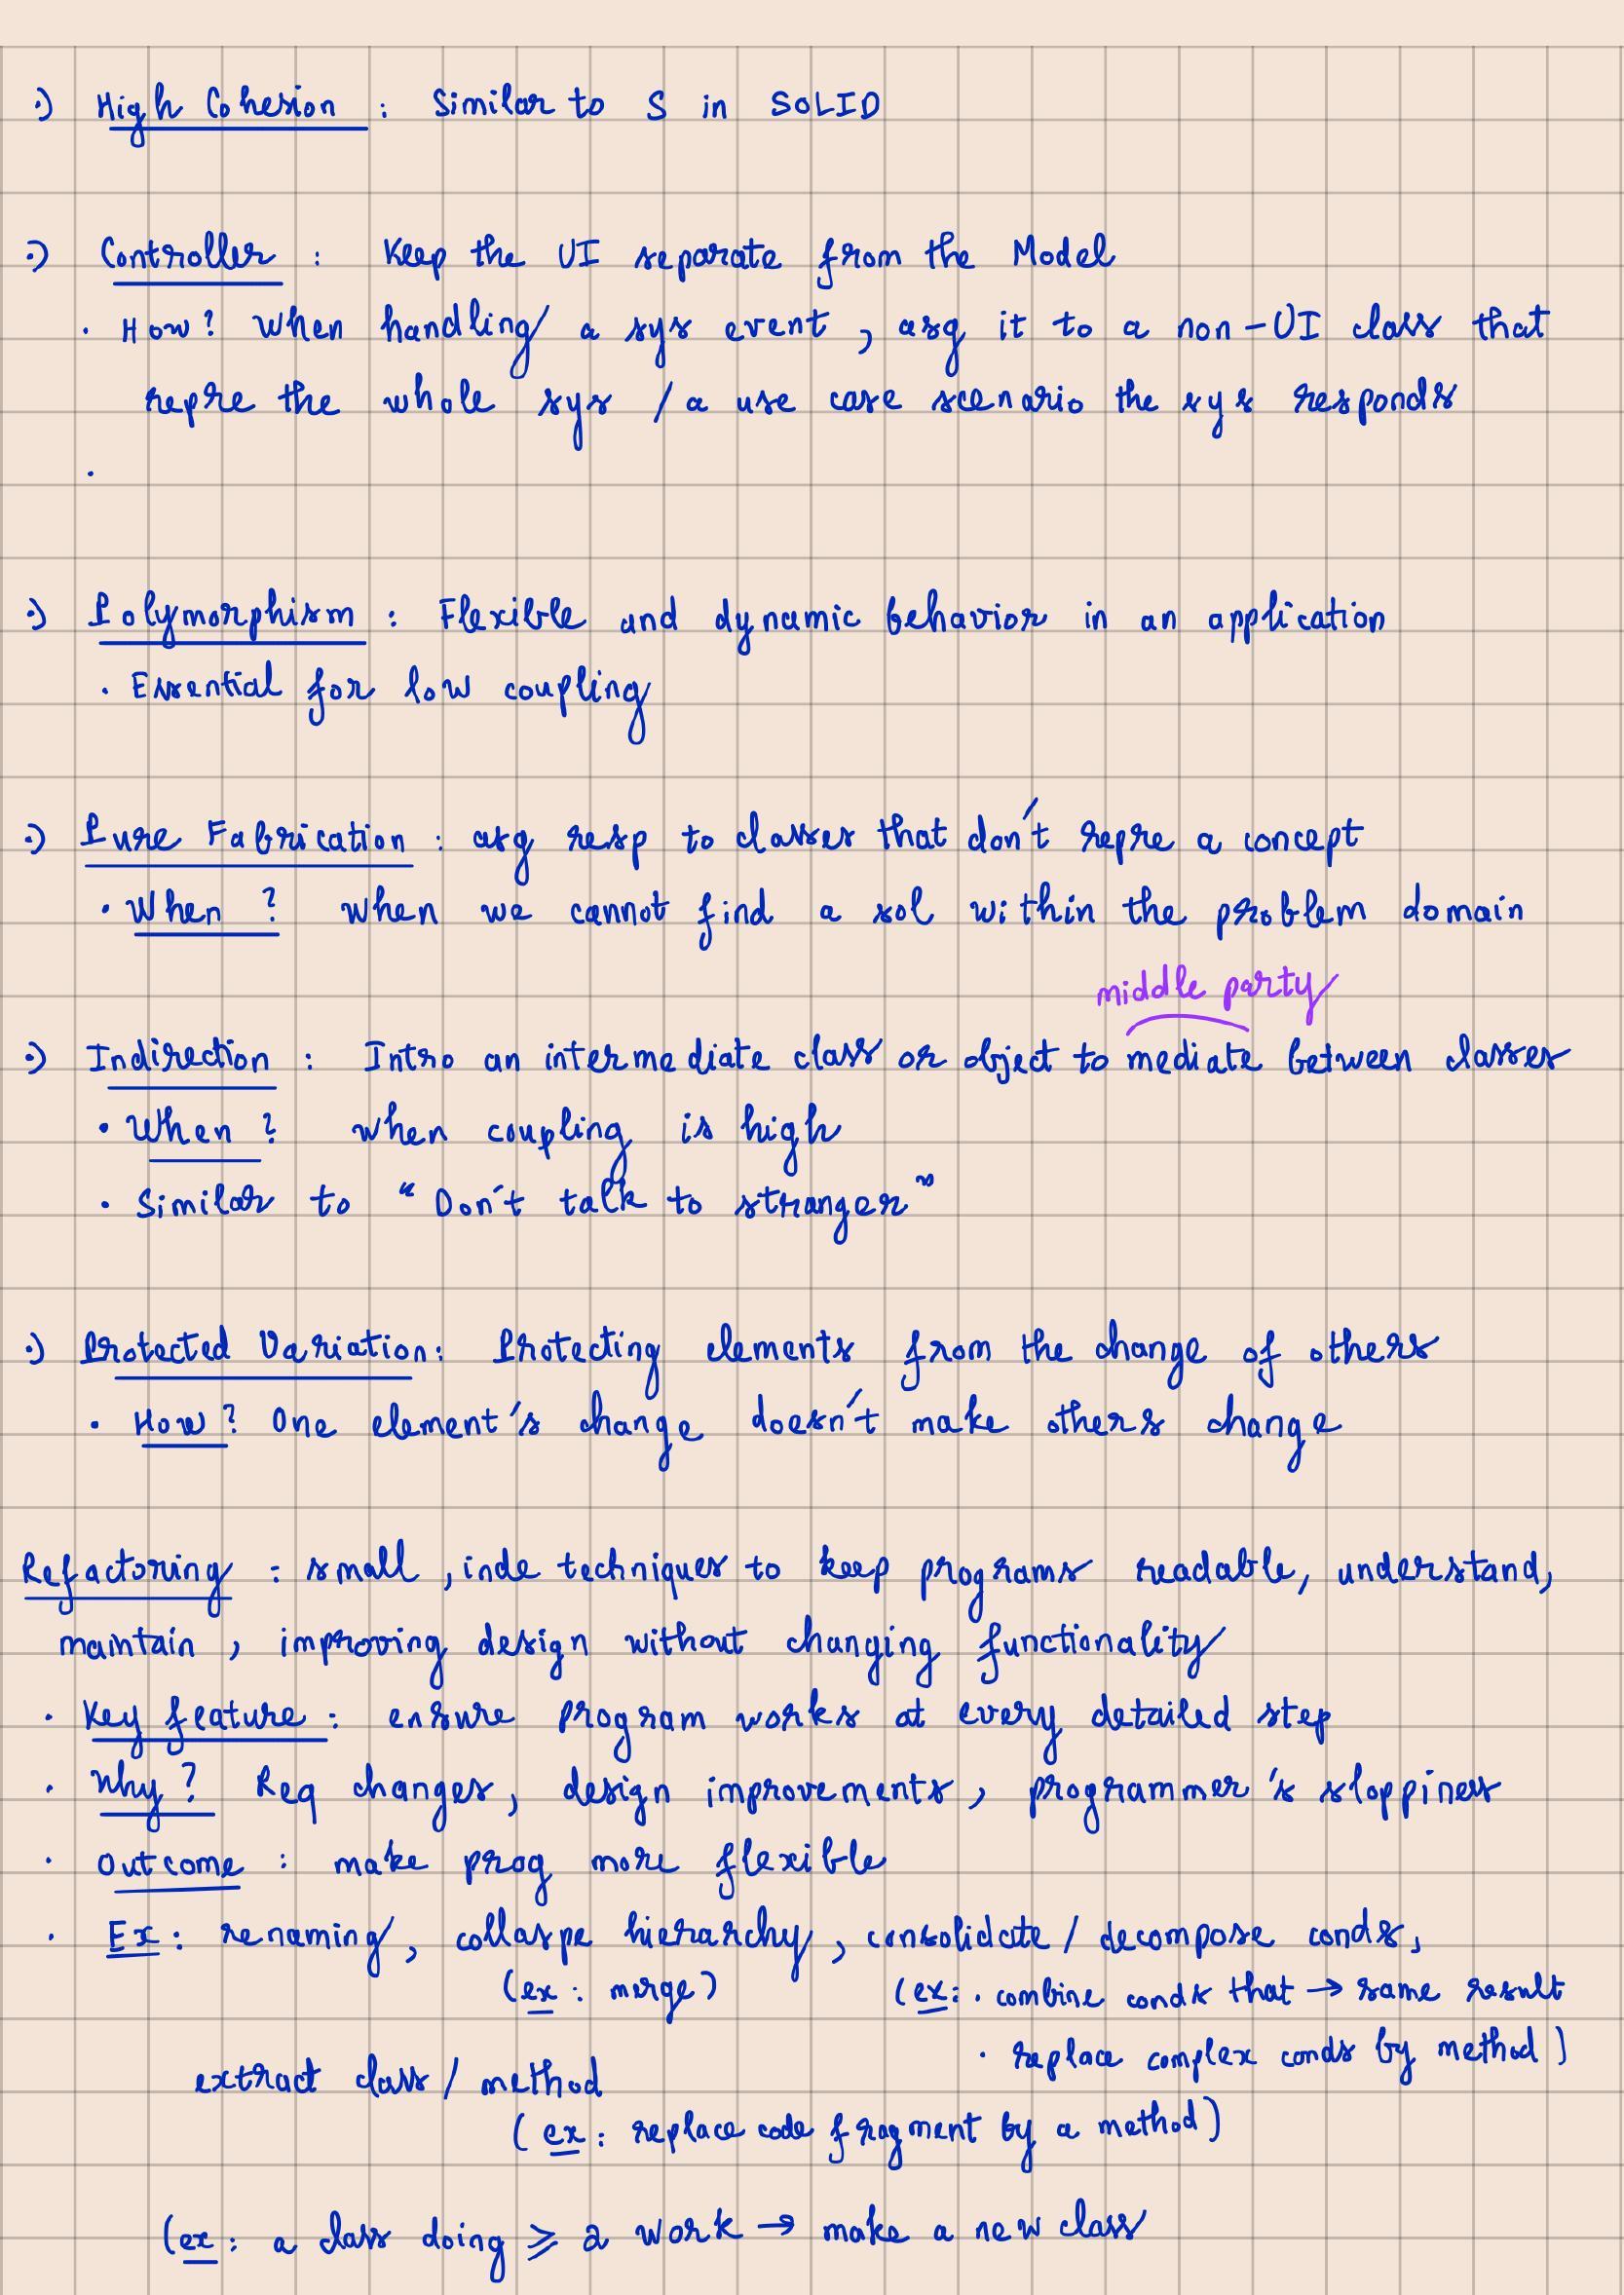 ·) High Cohesion : Similar to S in SOLID
·) Controller : Keep the UI separate from the Model
· How? When handling a sys event , asg it to a non-UI class that
repre the whole sys / a use case scenario the sys responds
·
·) Polymorphism : Flexible and dynamic behavior in an application
· Essential for low coupling
·) Pure Fabrication : asg resp to classes that don't repre a concept
· When ? when we cannot find a sol within the problem domain
middle party
·) Indirection : Intro an intermediate class or object to mediate between classes
· When ? when coupling is high
· Similar to “Don't talk to stranger”
·) Protected Variation: Protecting elements from the change of others
· How? One element's change doesn't make others change
Refactoring : small , inde techniques to keep programs readable, understand,
maintain , improving design without changing functionality
· Key feature : ensure program works at every detailed step
· Why? Req changes, design improvements, programmer's sloppiness
· Outcome : make prog more flexible
· Ex : renaming, collaspe hierarchy, consolidate / decompose conds,
(ex : merge) (ex: · combine conds that → same result
· replace complex conds by method)
extract class / method
(ex : replace code fragment by a method)
(ex : a class doing ⩾ 2 work → make a new class